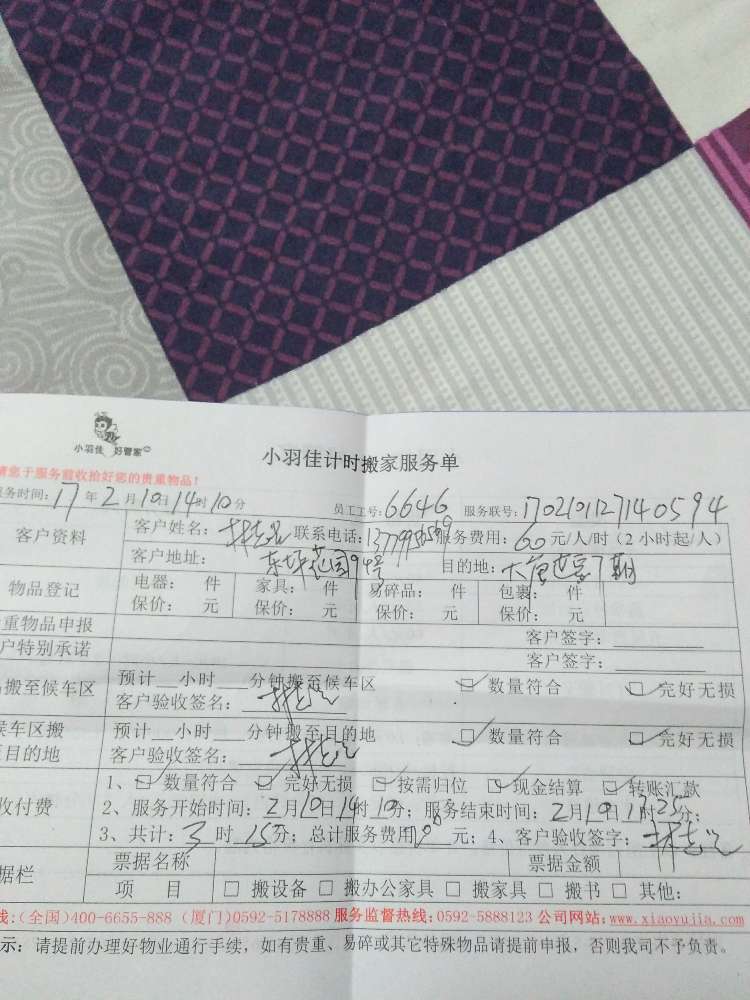 小羽佳 好管家
小羽佳计时搬家服务单
请您于服务前收拾好您的贵重物品!
服务时间: 17 年 2 月 10 日 14 时 10 分 员工工号: 6646 服务联号: 170210127140594
客户资料 客户姓名: 林志 联系电话: 服务费用: 60 元/人/时 (2 小时起/人)
客户地址: 东坪花园94号 目的地: 7期
物品登记 电器: 件 家具: 件 易碎品: 件 包裹: 件
保价: 元 保价: 元 保价: 元 保价: 元
重物品申报 客户签字:
户特别承诺 客户签字:
搬至候车区 预计 小时 分钟搬至候车区 数量符合 完好无损
客户验收签名: 林志
候车区搬 预计 小时 分钟搬至目的地 数量符合 完好无损
至目的地 客户验收签名: 林志
收付费 1、 数量符合 完好无损 按需归位 现金结算 转账汇款
2、服务开始时间: 2月10日14时10分; 服务结束时间: 2月10日 时25分;
3、共计: 3 时 15分; 总计服务费用 元; 4、客户验收签字: 林志
据栏 票据名称 票据金额
项 目 □ 搬设备 □ 搬办公家具 □ 搬家具 □ 搬书 □ 其他:
线:(全国)400-6655-888 (厦门)0592-5178888 服务监督热线: 0592-5888123 公司网站: www.xiaoyujia.com
示: 请提前办理好物业通行手续, 如有贵重、易碎或其它特殊物品请提前申报, 否则我司不予负责。